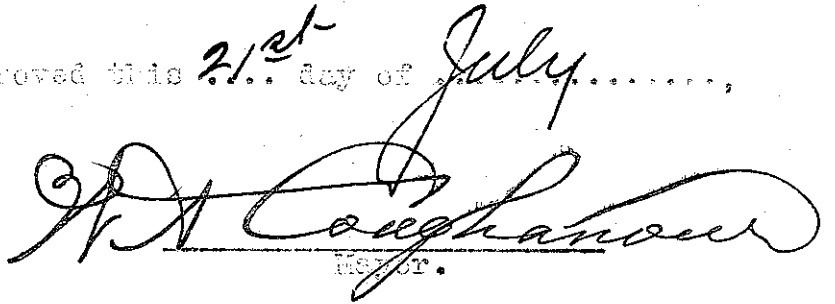 roved this 21st day of July......,
W A Coughanour
Mayor.